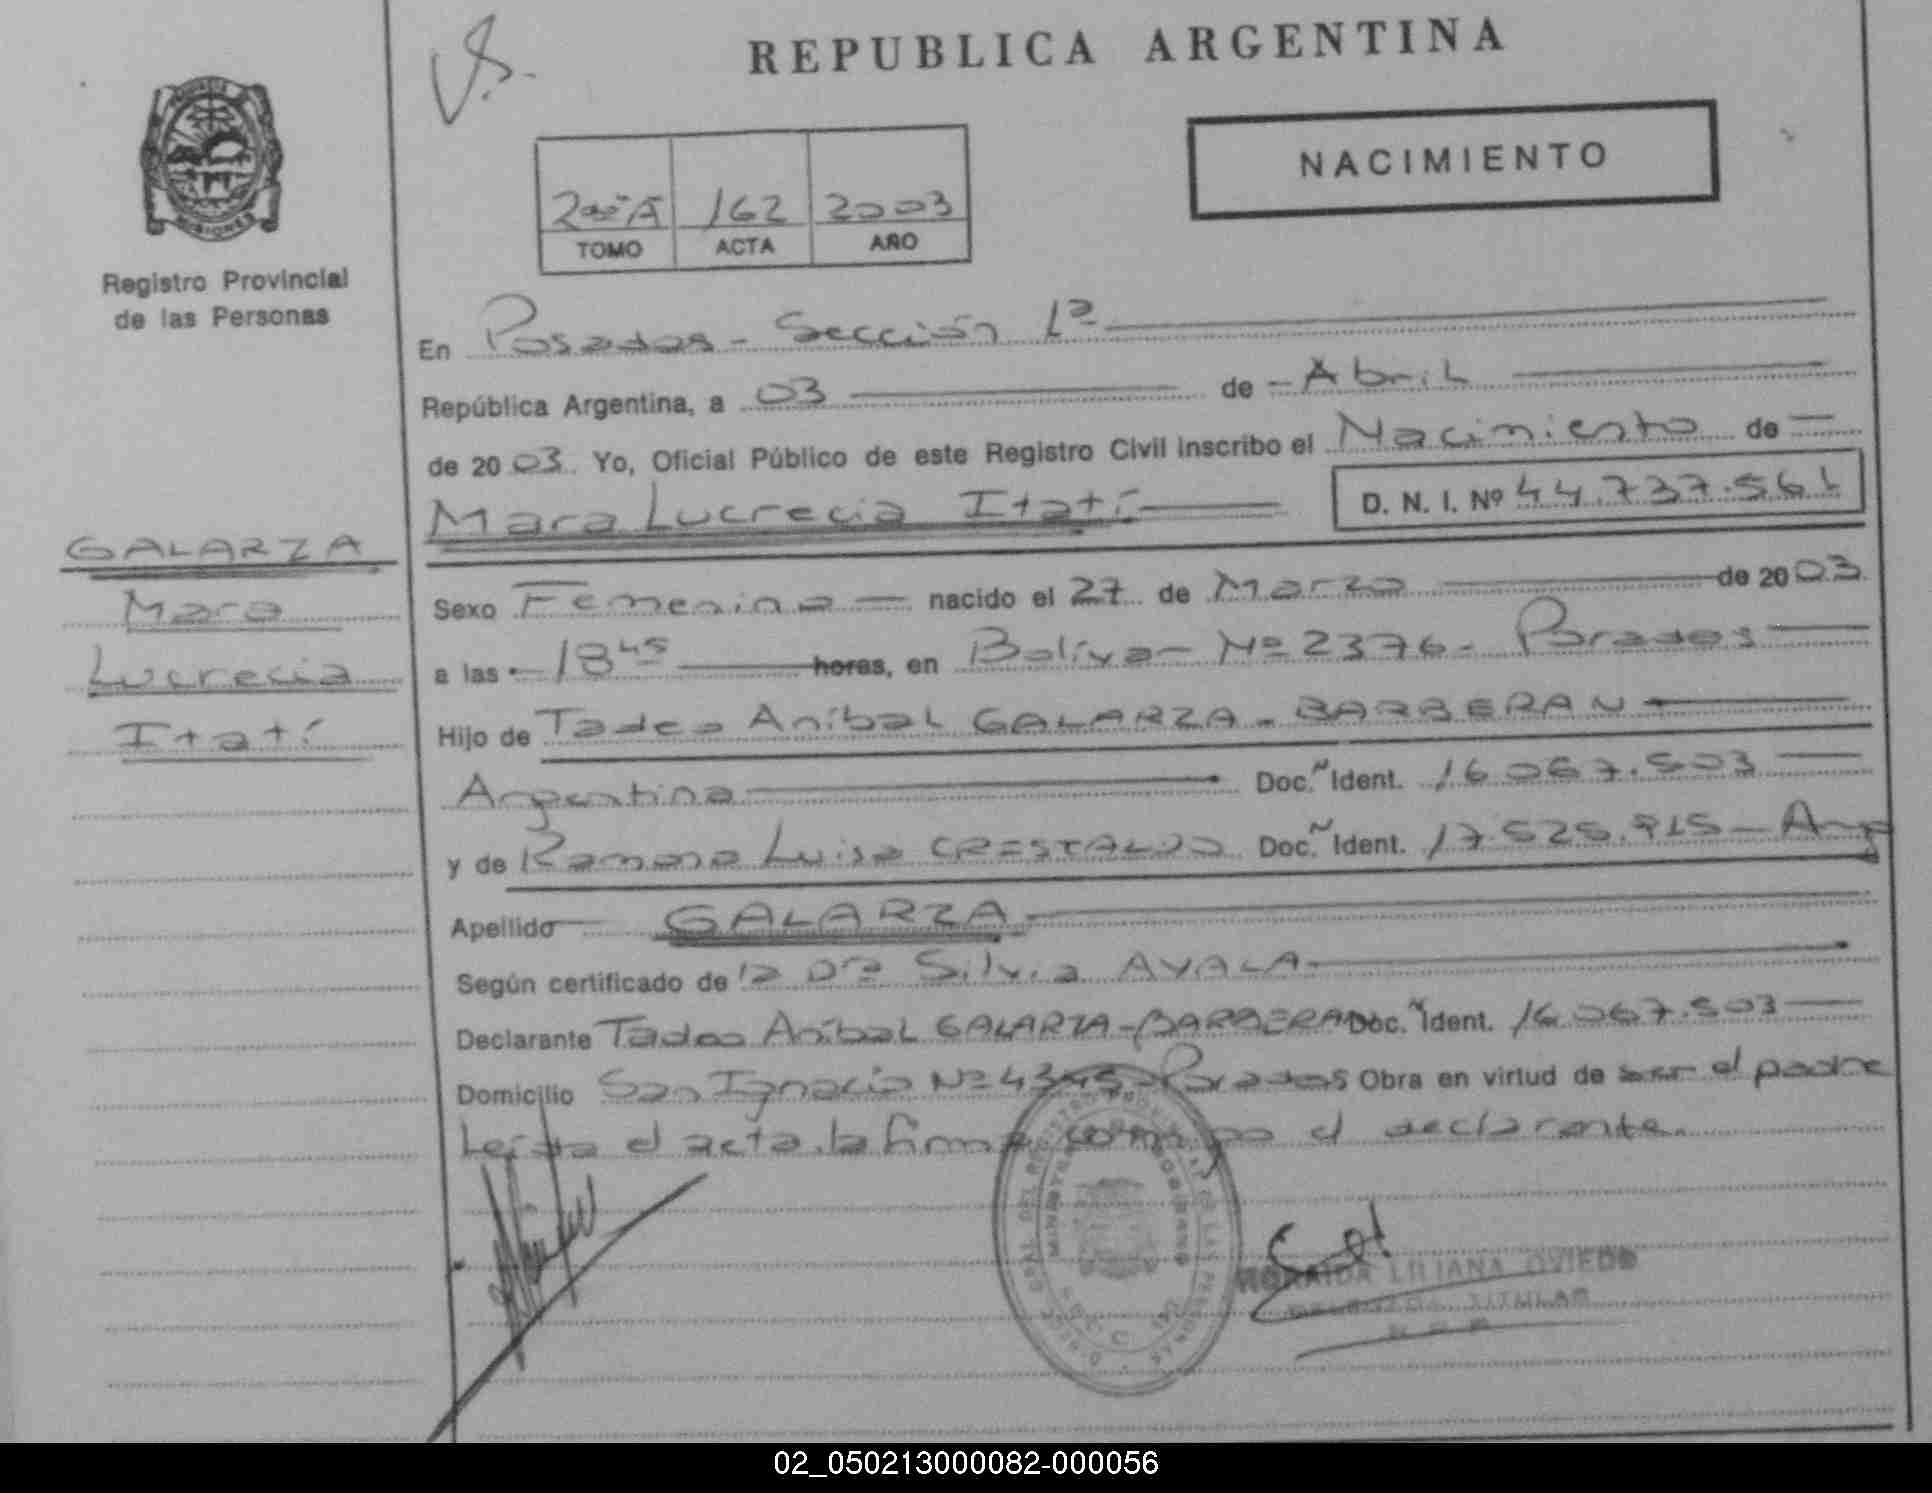 REPUBLICA ARGENTINA
NACIMIENTO
162 2003
TOMO ACTA AÑO
MISIONES
Registro Provincial
de las Personas
En Posadas - Sección 1ª
República Argentina, a 03 de Abril
de 2003. Yo, Oficial Público de este Registro Civil inscribo el Nacimiento de
Mara Lucrecia Itatí
D. N. I. Nº 44.737.561
GALARZA
Mara
Lucrecia
Itatí
Sexo Femenino nacido el 27 de Marzo de 2003
a las 18 45 horas, en Bolívar Nº 2376 - Posadas
Hijo de Tadeo Aníbal GALARZA - BARBERAN
Argentina Doc. Ident. 16.067.503
y de Ramona Luisa Doc. Ident. Arg
Apellido GALARZA
Según certificado de la Dra Silvia AYALA
Declarante Tadeo Aníbal GALARZA-BARBERAN Doc. Ident. 16.067.503
Domicilio San Ignacio Nº Posadas Obra en virtud de ser el padre
Leída el acta, la firma conmigo el declarante.
LILIANA OVIEDO
TITULAR
02_050213000082-000056